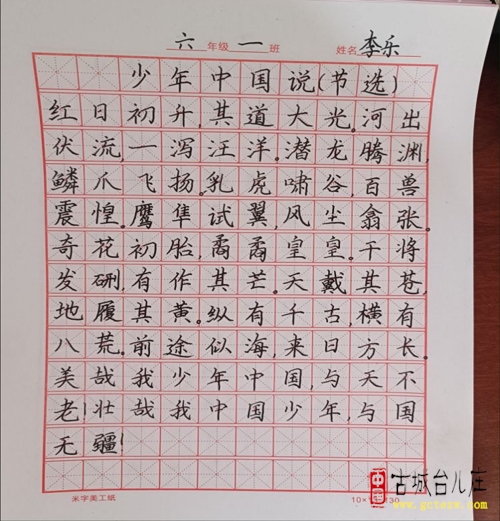 六年级一班 姓名李乐
少年中国说(节选)
红日初升,其道大光。河出
伏流,一泻汪洋。潜龙腾渊,
鳞爪飞扬。乳虎啸谷,百兽
震惶。鹰隼试翼,风尘翕张。
奇花初胎,矞矞皇皇。干将
发硎,有作其芒。天戴其苍,
地履其黄。纵有千古,横有
八荒。前途似海,来日方长。
美哉我少年中国,与天不
老!壮哉我中国少年,与国
无疆!
米字美工纸
古城台儿庄
www.gctezw.com